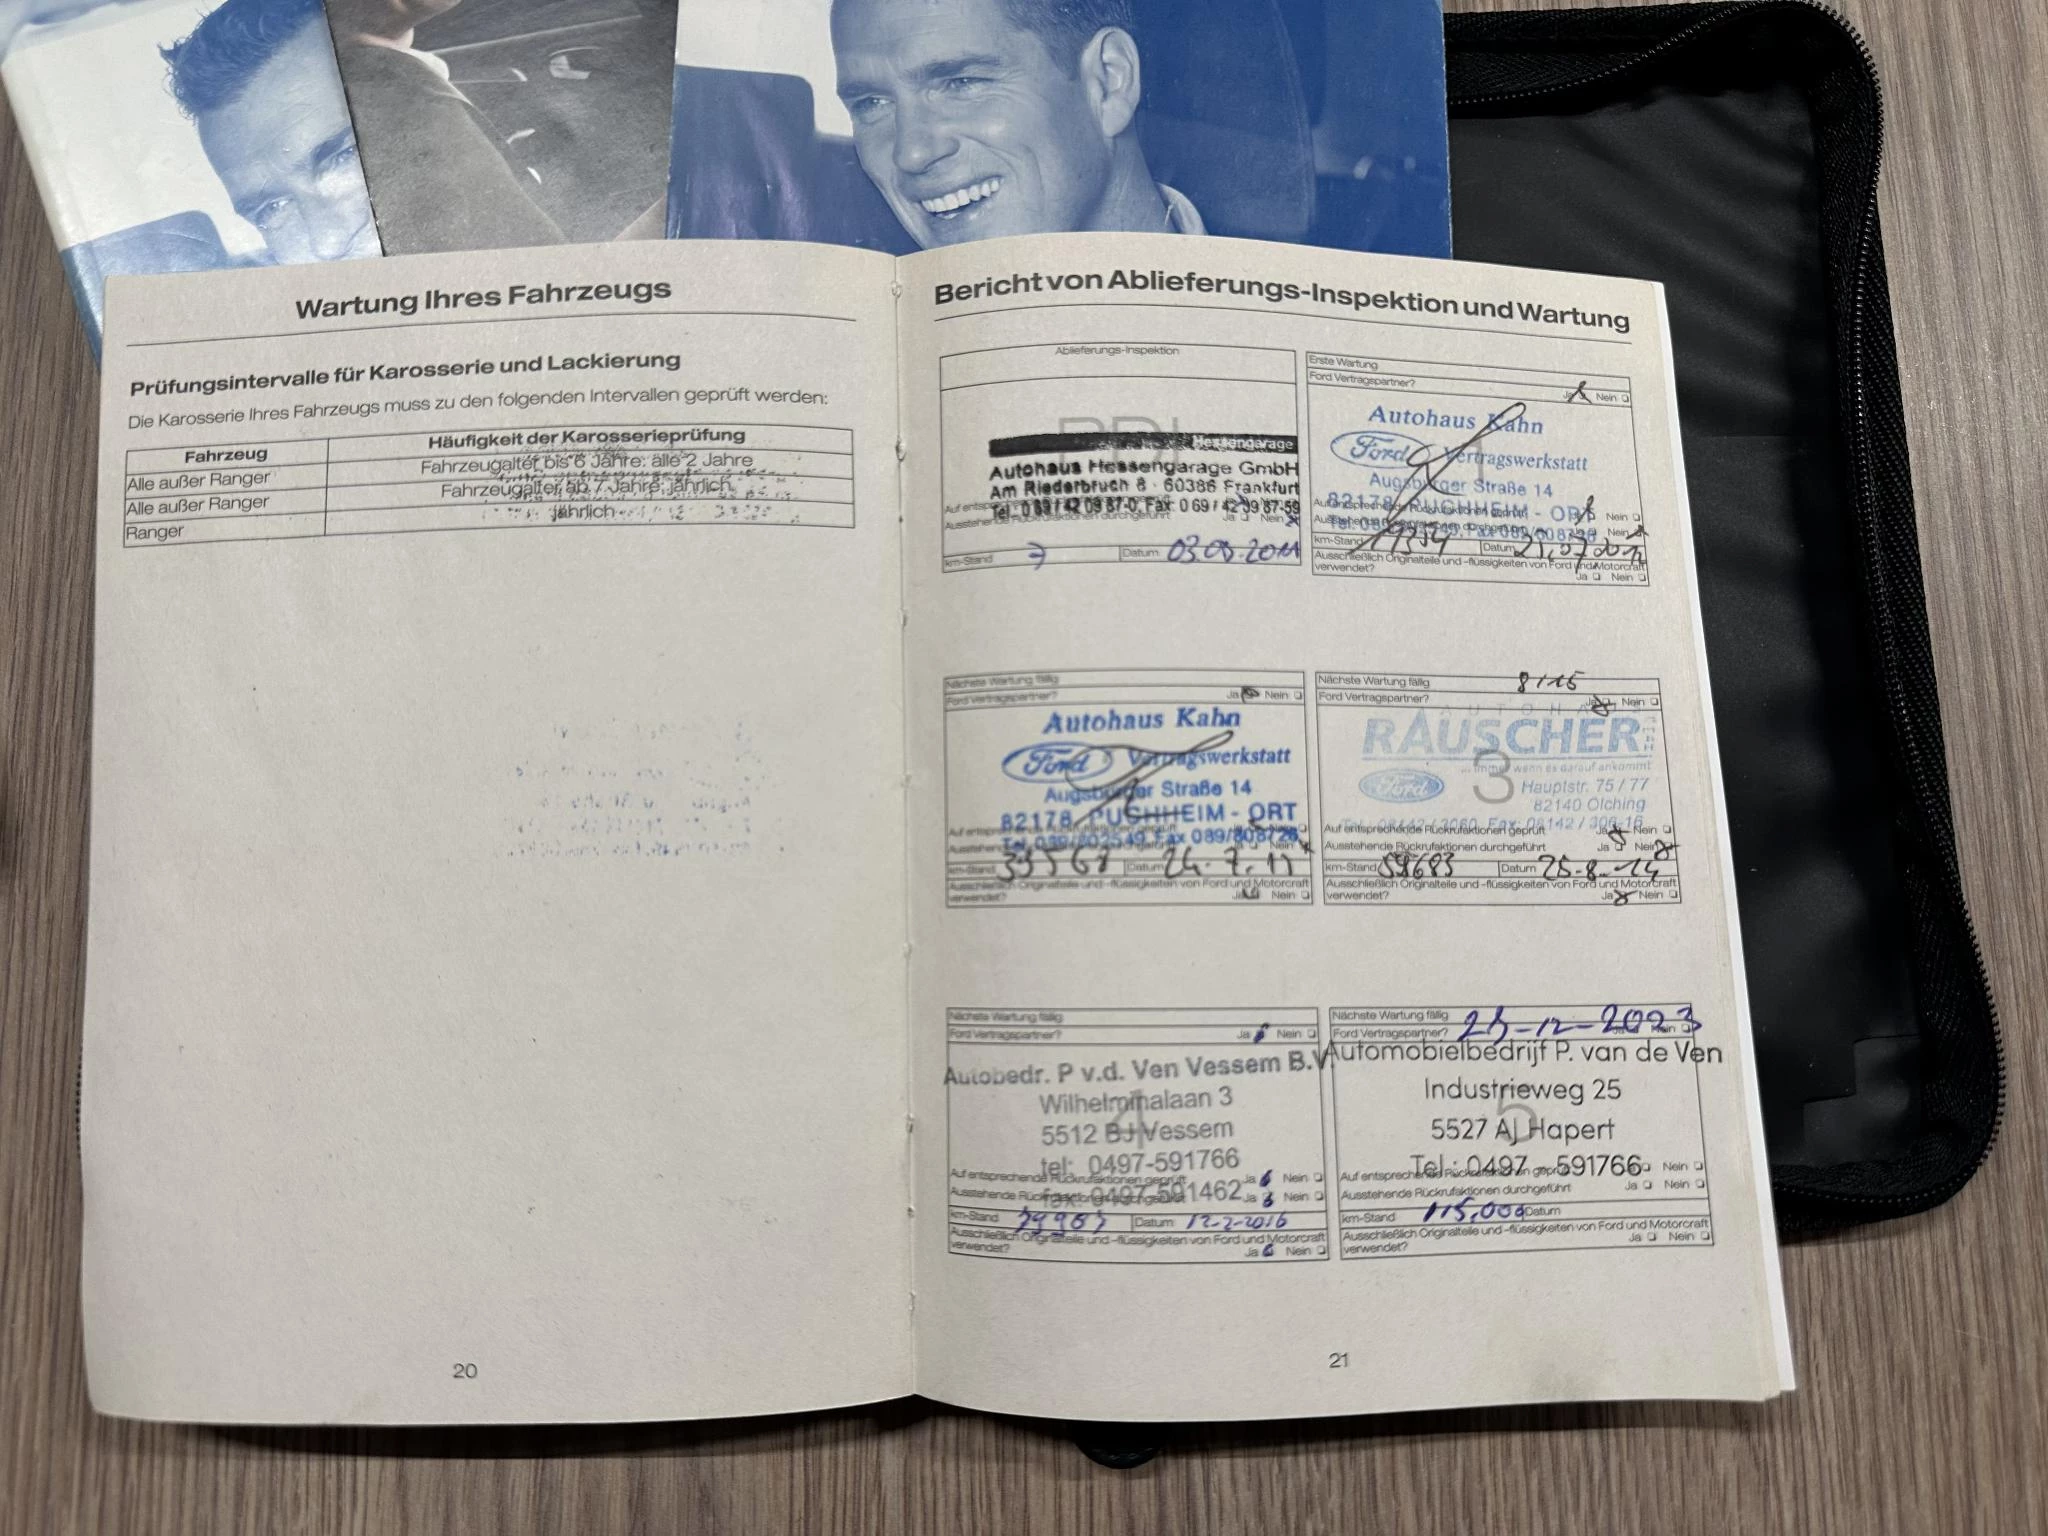 Wartung Ihres Fahrzeugs
Prüfungsintervalle für Karosserie und Lackierung
Die Karosserie Ihres Fahrzeugs muss zu den folgenden Intervallen geprüft werden:
Fahrzeug Häufigkeit der Karosserieprüfung
Alle außer Ranger Fahrzeugalter bis 6 Jahre: alle 2 Jahre
Alle außer Ranger Fahrzeugalter ab 7 Jahre: jährlich
Ranger jährlich
20
Bericht von Ablieferungs-Inspektion und Wartung
Ablieferungs-Inspektion
PDI
Hessengarage
Autohaus Hessengarage GmbH
Am Riederbruch 8 · 60386 Frankfurt
Tel.: 0 69 / 42 09 87-0, Fax: 0 69 / 42 09 87-59
Ja Nein
km-Stand 7 Datum 03.09.2011
Erste Wartung
Ford Vertragspartner? Ja Nein
Autohaus Kahn
Ford Vertragswerkstatt
Augsburger Straße 14
82178 PUCHHEIM - ORT
Auf entsprechende Rückrufaktionen geprüft Nein
Ausstehende Rückrufaktionen durchgeführt Nein
km-Stand Datum
Ausschließlich Originalteile und -flüssigkeiten von Ford und Motorcraft
verwendet? Ja Nein
Nächste Wartung fällig
Ford Vertragspartner? Ja Nein
Autohaus Kahn
Ford Vertragswerkstatt
Augsburger Straße 14
82178 PUCHHEIM - ORT
Tel. 089/802549, Fax 089/808726
km-Stand Datum 24.7.13
Ausschließlich Originalteile und -flüssigkeiten von Ford und Motorcraft
verwendet? Ja Nein
Nächste Wartung fällig 8/15
Ford Vertragspartner? Ja Nein
AUTOHAUS
RAUSCHER GMBH
...immer wenn es darauf ankommt
3
Ford Hauptstr. 75 / 77
82140 Olching
Auf entsprechende Rückrufaktionen geprüft Ja Nein
Ausstehende Rückrufaktionen durchgeführt Ja Nein
km-Stand 59683 Datum 25-8-14
Ausschließlich Originalteile und -flüssigkeiten von Ford und Motorcraft
verwendet? Ja Nein
Nächste Wartung fällig
Ford Vertragspartner? Ja Nein
Autobedr. P v.d. Ven Vessem B.V.
Wilhelminalaan 3
4
5512 BJ Vessem
tel: 0497-591766
Auf entsprechende Rückrufaktionen geprüft Ja Nein
fax: 0497-591462
Ausstehende Rückrufaktionen durchgeführt Ja Nein
km-Stand Datum 12-2-2016
Ausschließlich Originalteile und -flüssigkeiten von Ford und Motorcraft
verwendet? Ja Nein
Nächste Wartung fällig
Ford Vertragspartner? Nein
Automobielbedrijf P. van de Ven
Industrieweg 25
5
5527 AJ Hapert
Tel.: 0497 - 591766
Auf entsprechende Rückrufaktionen geprüft Nein
Ausstehende Rückrufaktionen durchgeführt Ja Nein
km-Stand 115,000 Datum
Ausschließlich Originalteile und -flüssigkeiten von Ford und Motorcraft
verwendet? Ja Nein
21